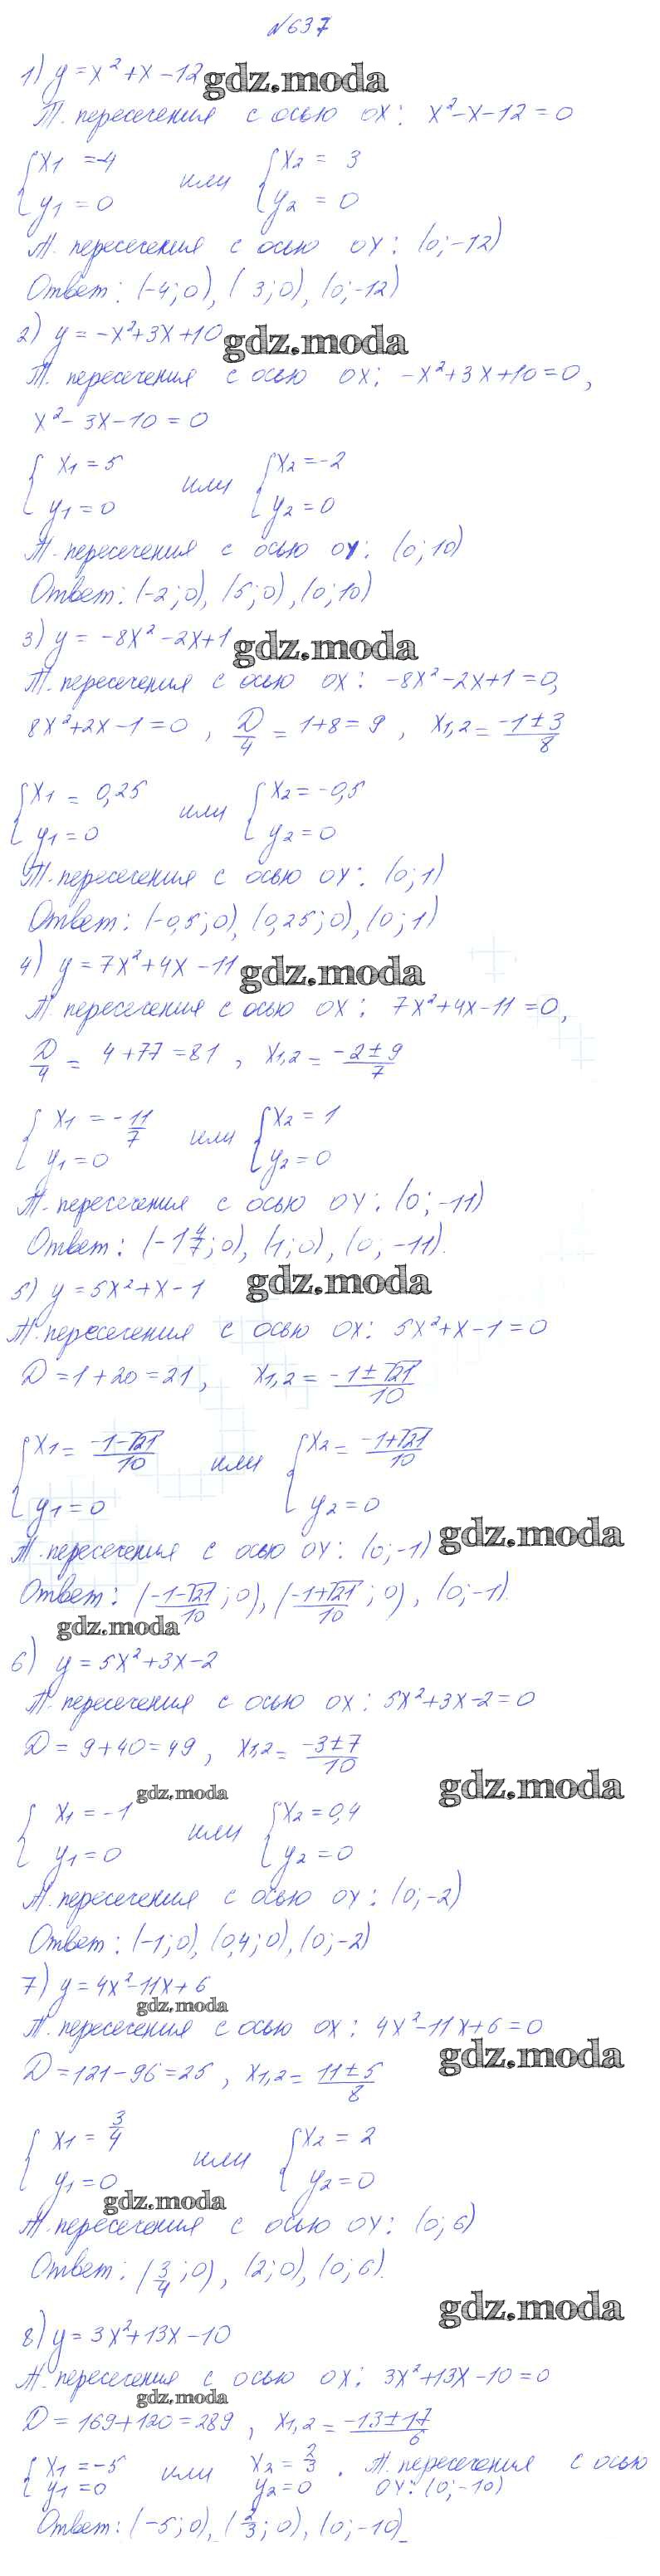 №637
1) y = x² + x − 12 gdz.moda
Т. пересечения с осью OX: x² − x − 12 = 0
{x₁ = −4 или {x₂ = 3
{y₁ = 0 {y₂ = 0
Т. пересечения с осью OY: (0; −12)
Ответ: (−4; 0), (3; 0), (0; −12)
2) y = −x² + 3x + 10 gdz.moda
Т. пересечения с осью OX: −x² + 3x + 10 = 0,
x² − 3x − 10 = 0
{x₁ = 5 или {x₂ = −2
{y₁ = 0 {y₂ = 0
Т. пересечения с осью OY: (0; 10)
Ответ: (−2; 0), (5; 0), (0; 10)
3) y = −8x² − 2x + 1 gdz.moda
Т. пересечения с осью OX: −8x² − 2x + 1 = 0,
8x² + 2x − 1 = 0, D/4 = 1 + 8 = 9, x₁,₂ = (−1 ± 3)/8
{x₁ = 0,25 или {x₂ = −0,5
{y₁ = 0 {y₂ = 0
Т. пересечения с осью OY: (0; 1)
Ответ: (−0,5; 0), (0,25; 0), (0; 1)
4) y = 7x² + 4x − 11 gdz.moda
Т. пересечения с осью OX: 7x² + 4x − 11 = 0,
D/4 = 4 + 77 = 81, x₁,₂ = (−2 ± 9)/7
{x₁ = −11/7 или {x₂ = 1
{y₁ = 0 {y₂ = 0
Т. пересечения с осью OY: (0; −11)
Ответ: (−1 4/7; 0), (1; 0), (0; −11).
5) y = 5x² + x − 1 gdz.moda
Т. пересечения с осью OX: 5x² + x − 1 = 0
D = 1 + 20 = 21, x₁,₂ = (−1 ± √21)/10
{x₁ = (−1−√21)/10 или {x₂ = (−1+√21)/10
{y₁ = 0 {y₂ = 0
Т. пересечения с осью OY: (0; −1) gdz.moda
Ответ: ((−1−√21)/10; 0), ((−1+√21)/10; 0), (0; −1).
gdz.moda
6) y = 5x² + 3x − 2
Т. пересечения с осью OX: 5x² + 3x − 2 = 0
D = 9 + 40 = 49, x₁,₂ = (−3 ± 7)/10
gdz.moda gdz.moda
{x₁ = −1 или {x₂ = 0,4
{y₁ = 0 {y₂ = 0
Т. пересечения с осью OY: (0; −2)
Ответ: (−1; 0), (0,4; 0), (0; −2)
7) y = 4x² − 11x + 6
gdz.moda
Т. пересечения с осью OX: 4x² − 11x + 6 = 0
gdz.moda
D = 121 − 96 = 25, x₁,₂ = (11 ± 5)/8
{x₁ = 3/4 или {x₂ = 2
{y₁ = 0 {y₂ = 0
gdz.moda
Т. пересечения с осью OY: (0; 6)
Ответ: (3/4; 0), (2; 0), (0; 6).
gdz.moda
8) y = 3x² + 13x − 10
Т. пересечения с осью OX: 3x² + 13x − 10 = 0
gdz.moda
D = 169 + 120 = 289, x₁,₂ = (−13 ± 17)/6
{x₁ = −5 или x₂ = 2/3 . Т. пересечения с осью
{y₁ = 0 y₂ = 0 OY: (0; −10)
Ответ: (−5; 0), (2/3; 0), (0; −10)